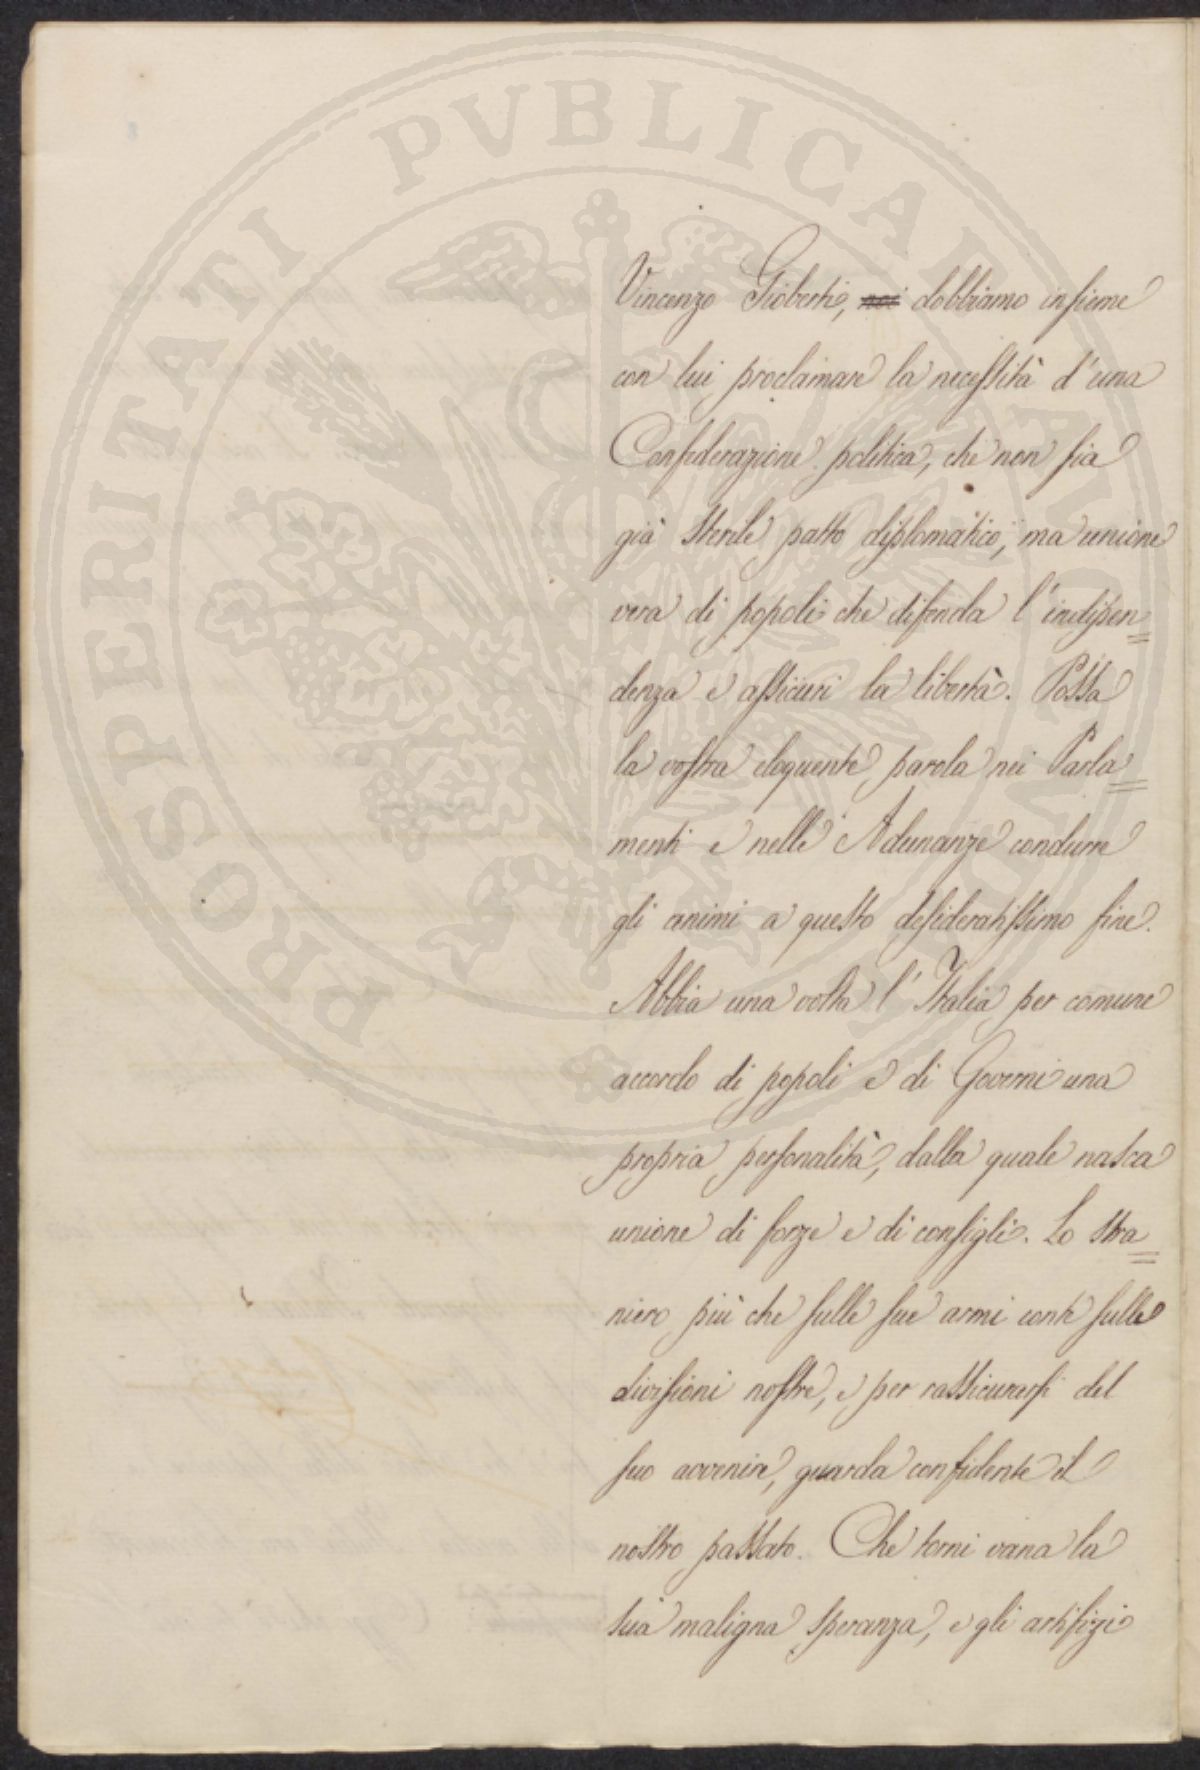 PROSPERITATI PVBLICAE AVGENDAE
Vincenzo Gioberti, noi dobbiamo insieme
con lui proclamare la necessità d'una
Confederazione politica, che non sia
già sterile patto diplomatico, ma unione
vera di popoli che difenda l'indipen=
denza e assicuri la libertà. Possa
la vostra eloquente parola nei Parla=
menti e nelle Adunanze condurre
gli animi a questo desideratissimo fine.
Abbia una volta l'Italia per comune
accordo di popoli e di Governi una
propria personalità, dalla quale nasca
unione di forze e di consigli. Lo stra=
niero più che sulle sue armi conti sulle
divisioni nostre, e per rassicurarsi del
suo avvenire, guarda confidente il
nostro passato. Che torni vana la
sua maligna speranza, e gli artifizi